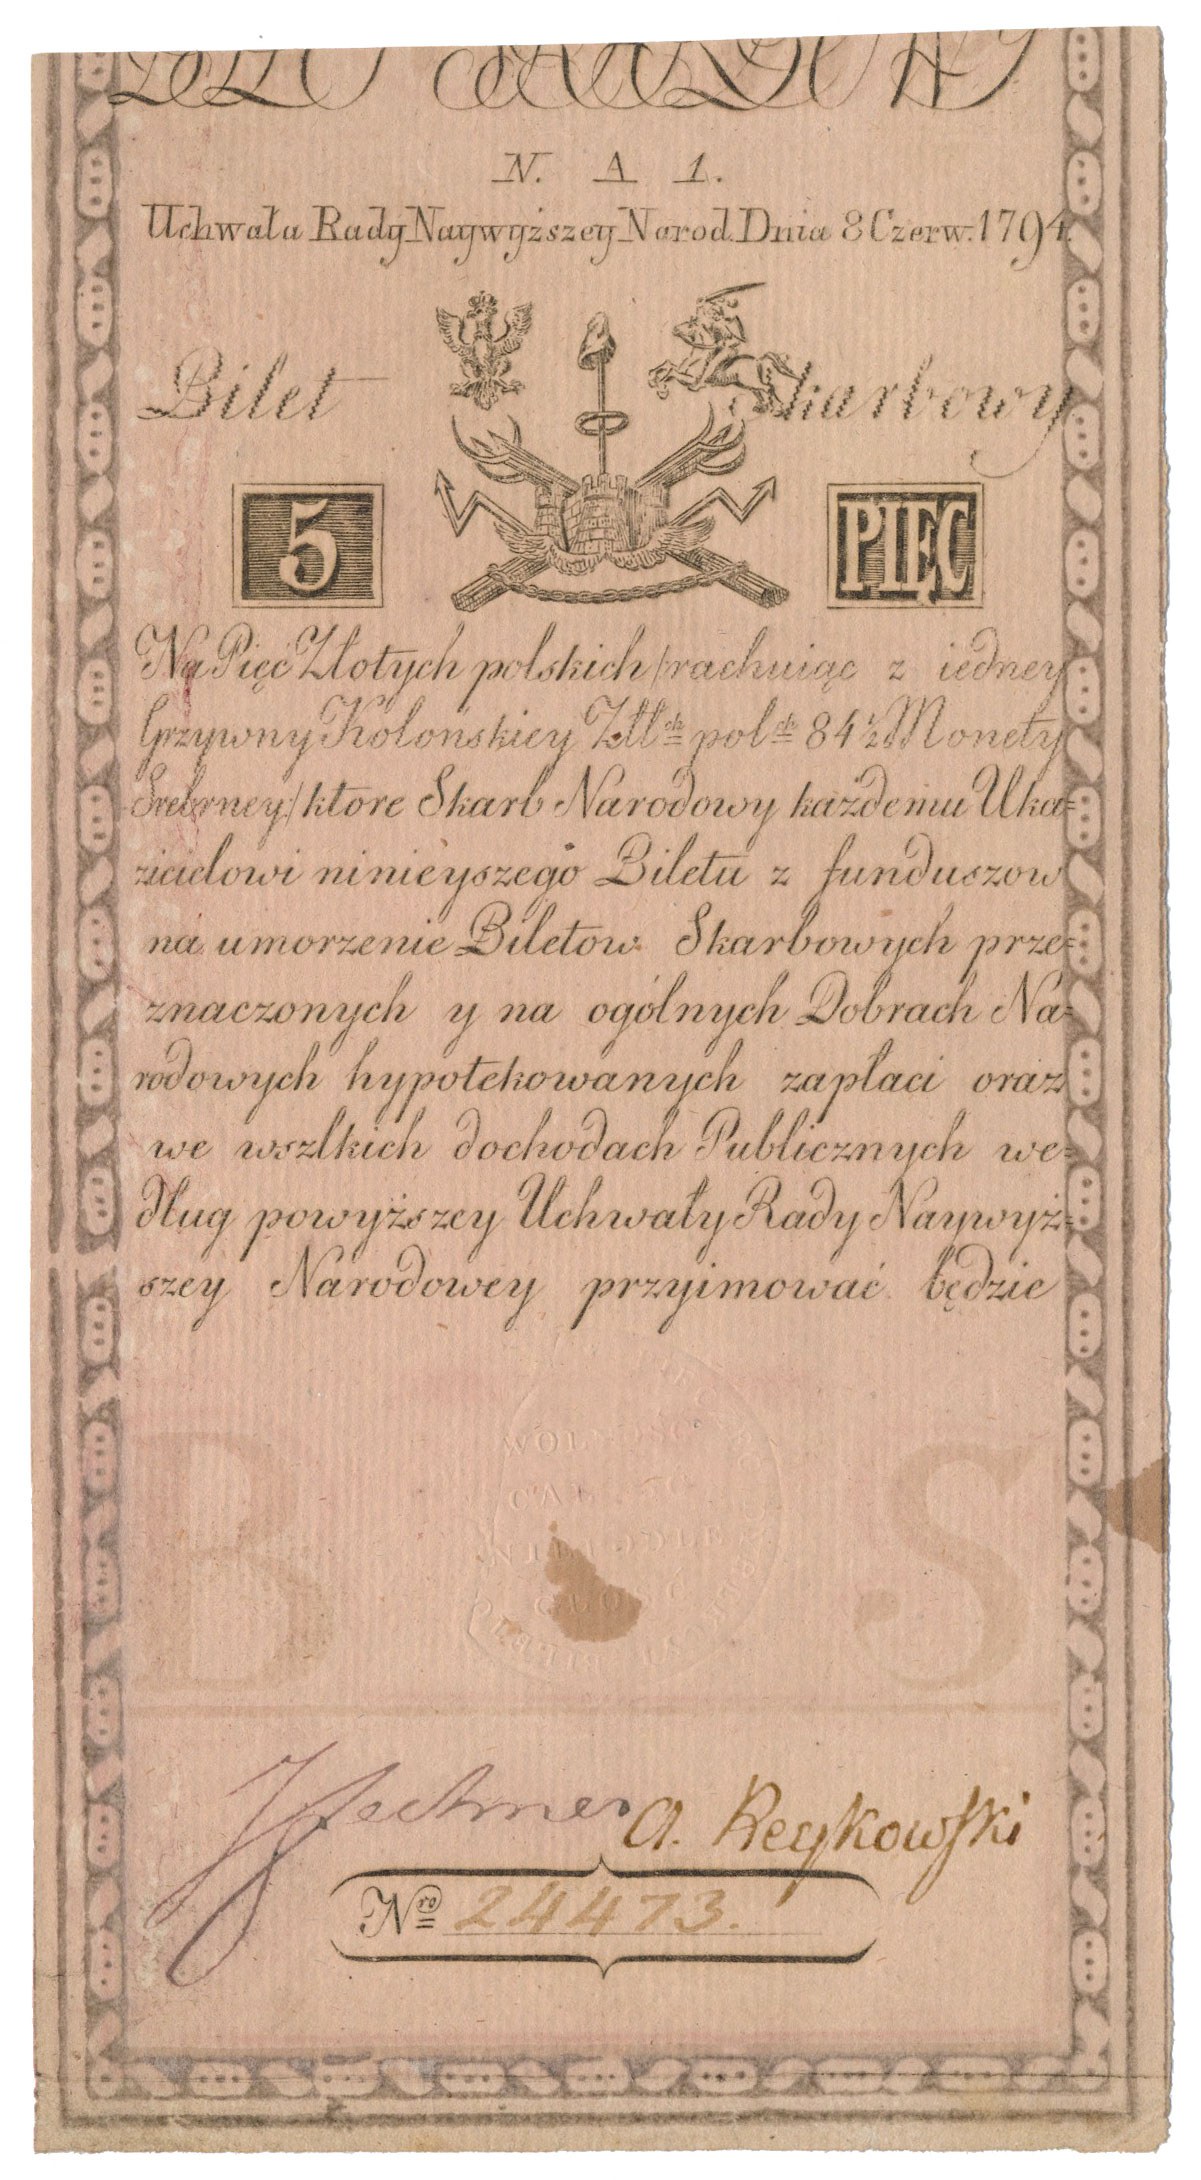 N. A 1.
Uchwała Rady Naywyższey Narod. Dnia 8 Czerw. 1794.
Bilet Skarbowy
5 PIĘC
Na Pięć Złotych polskich /rachuiąc z iedney
Grzywny Kolońskiey Złł ch pol ch 84 1/2 Monety
Srebrney/ ktore Skarb Narodowy każdemu Uka=
zicielowi ninieyszego Biletu z funduszow
na umorzenie Biletow Skarbowych prze=
znaczonych y na ogólnych Dobrach Na=
rodowych hypotekowanych zapłaci oraz
we wszlkich dochodach Publicznych we=
dług powyższey Uchwały Rady Naywyż=
szey Narodowey przyimować będzie
WOLNOSC
CAŁOSC
NIEPODLE
GŁOSC
B S
A. Reykowski
Nro 24473.